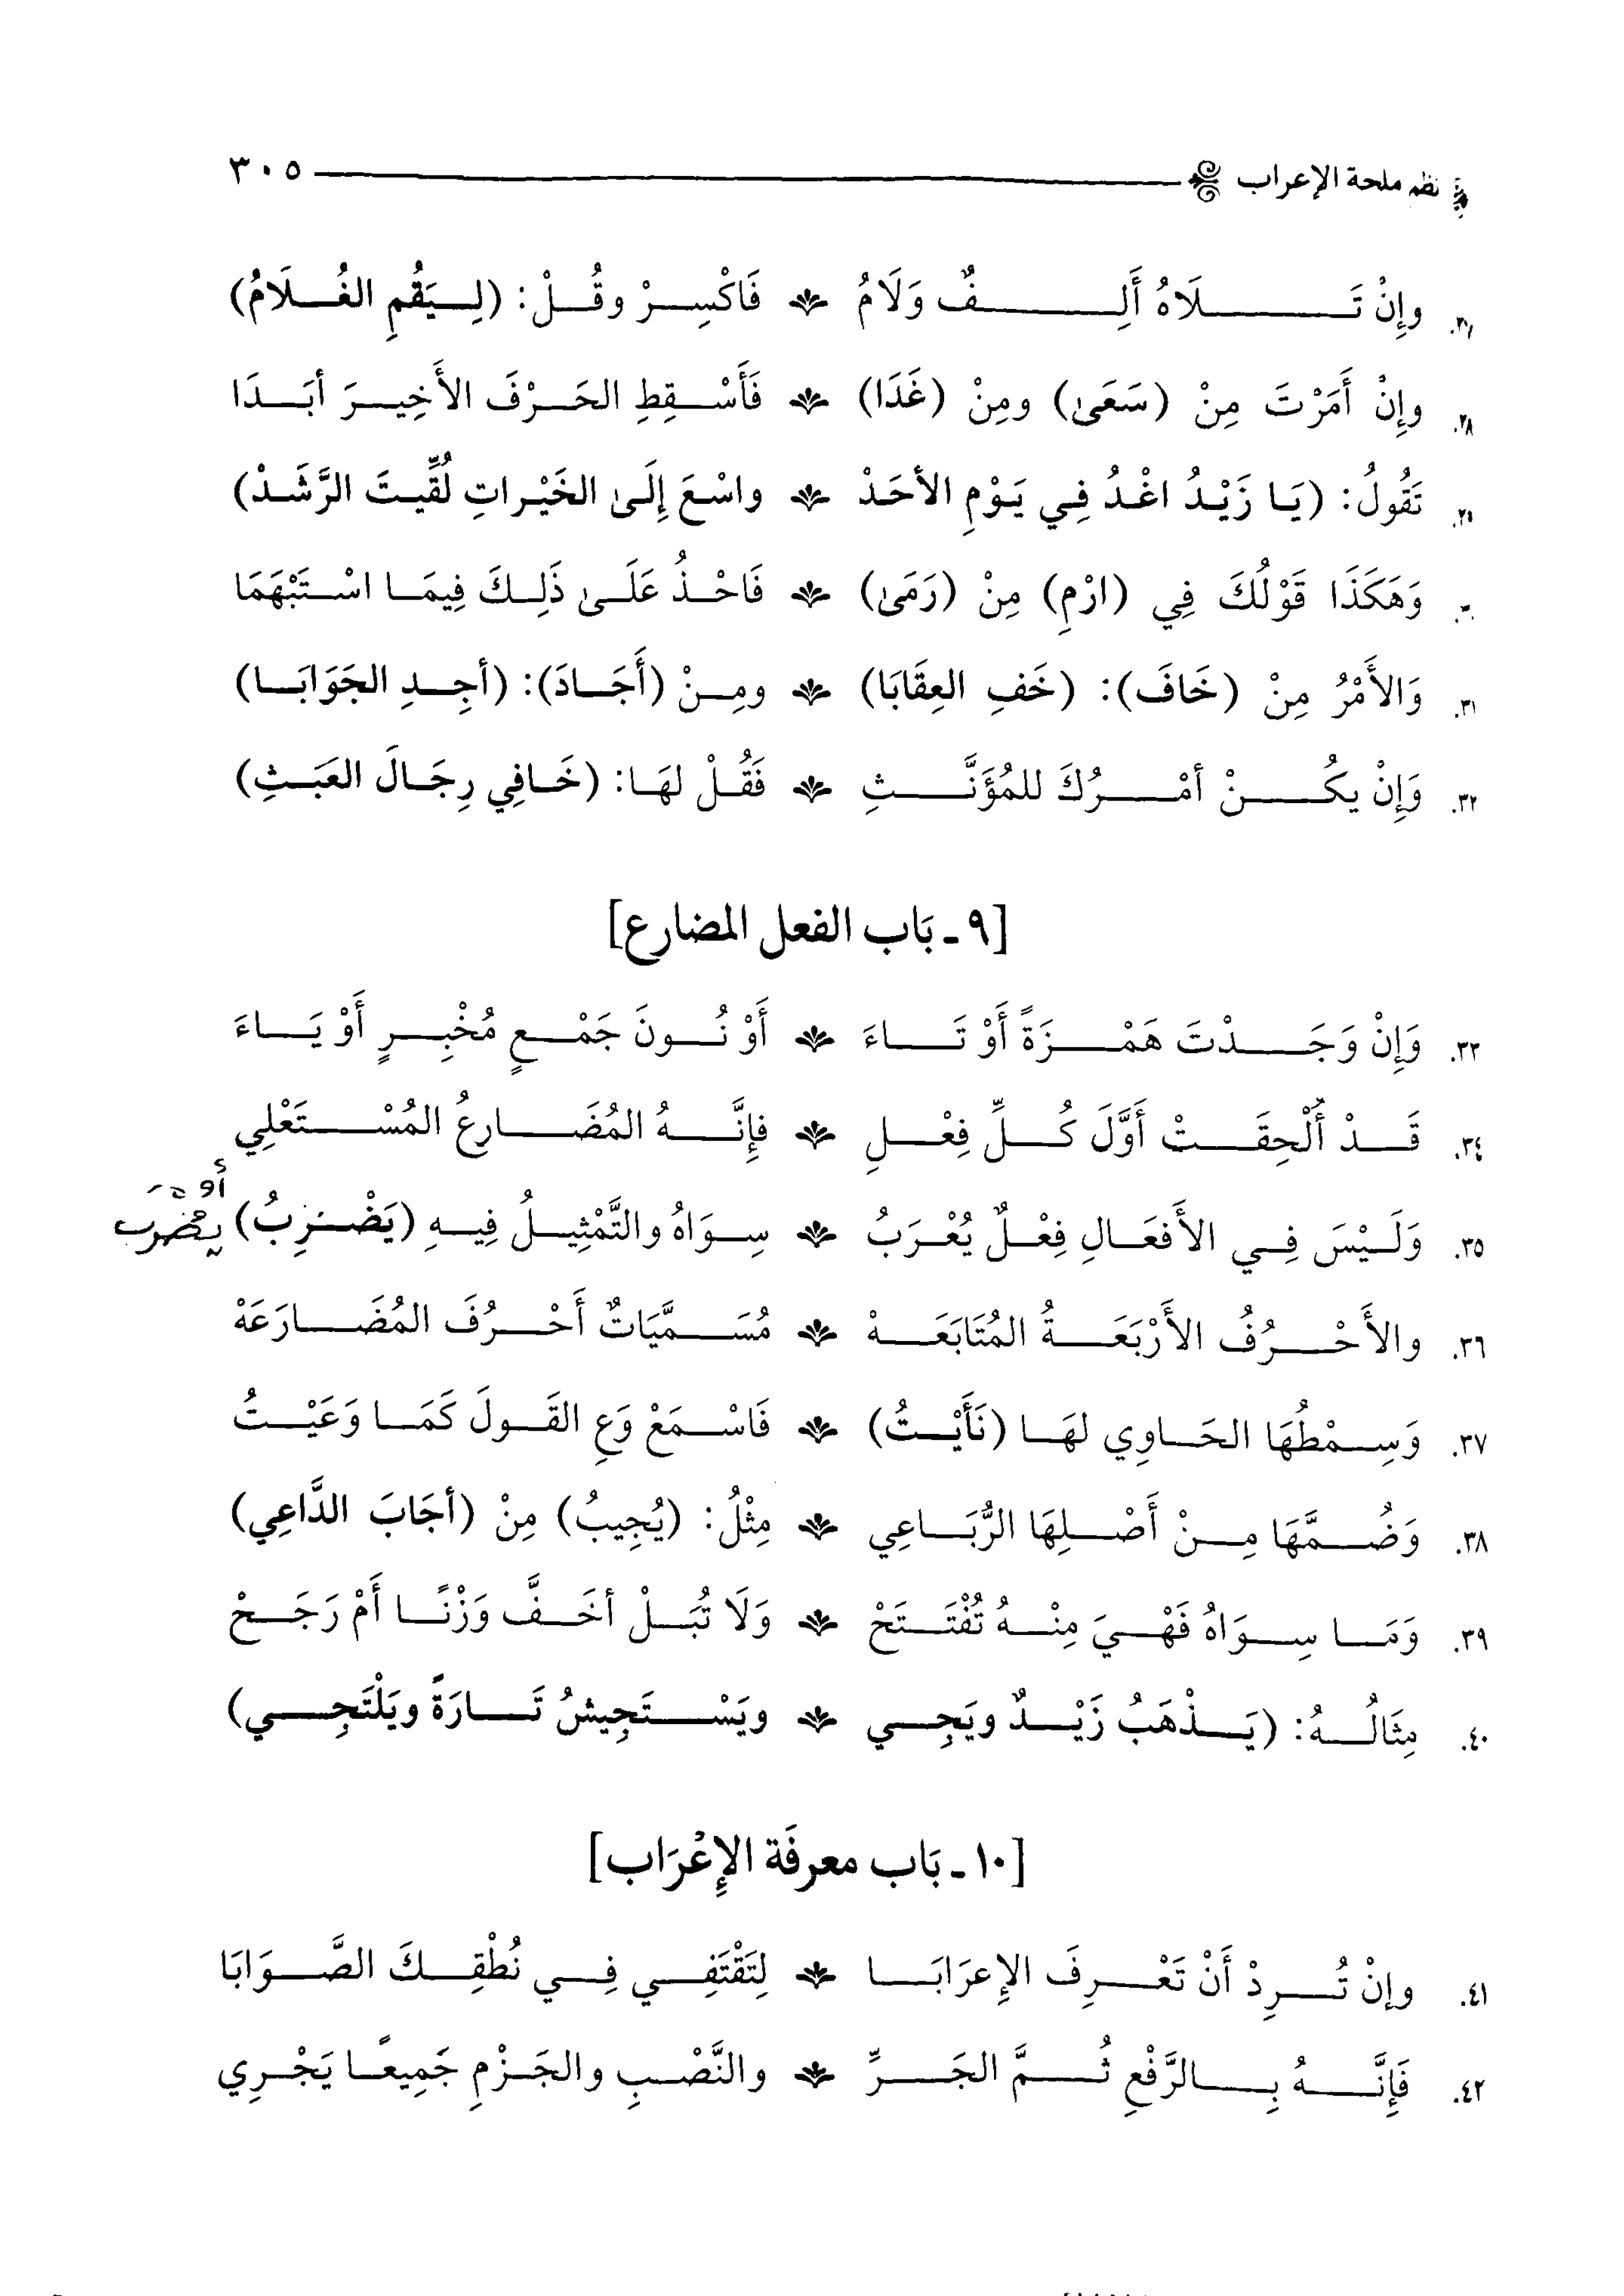 نظم ملحة الإعراب ٣٠٥
٢٧. وإِنْ تَلَاهُ أَلِفٌ وَلَامُ فَاكْسِرْ وقُلْ: (لِيَقُمِ الغُلَامُ)
٢٨. وإِنْ أَمَرْتَ مِنْ (سَعَى) ومِنْ (غَدَا) فَأَسْقِطِ الحَرْفَ الأَخِيرَ أبَدَا
٢٩. تَقُولُ: (يَا زَيْدُ اغْدُ فِي يَوْمِ الأحَدْ واسْعَ إِلَى الخَيْراتِ لُقِّيتَ الرَّشَدْ)
٣٠. وَهَكَذَا قَوْلُكَ فِي (ارْمِ) مِنْ (رَمَى) فَاحْذُ عَلَى ذَلِكَ فِيمَا اسْتَبْهَمَا
٣١. وَالأَمْرُ مِنْ (خَافَ): (خَفِ العِقَابَا) ومِنْ (أَجَادَ): (أجِدِ الجَوَابَا)
٣٢. وَإِنْ يكُنْ أمْرُكَ للمُؤَنَّثِ فَقُلْ لهَا: (خَافِي رِجَالَ العَبَثِ)
[٩ - بَاب الفعل المضارع]
٣٣. وَإِنْ وَجَدْتَ هَمْزَةً أَوْ تَاءَ أَوْ نُونَ جَمْعٍ مُخْبِرٍ أَوْ يَاءَ
٣٤. قَدْ أُلْحِقَتْ أَوَّلَ كُلِّ فِعْلِ فإِنَّهُ المُضَارِعُ المُسْتَعْلِي
٣٥. وَلَيْسَ فِي الأَفعَالِ فِعْلٌ يُعْرَبُ سِوَاهُ والتَّمْثِيلُ فِيهِ (يَضْرِبُ)
٣٦. والأَحْرُفُ الأَرْبَعَةُ المُتَابَعَهْ مُسَمَّيَاتٌ أَحْرُفَ المُضَارَعَهْ
٣٧. وَسِمْطُهَا الحَاوِي لهَا (نَأَيْتُ) فَاسْمَعْ وَعِ القَولَ كَمَا وَعَيْتُ
٣٨. وَضُمَّهَا مِنْ أَصْلِهَا الرُّبَاعِي مِثْلُ: (يُجِيبُ) مِنْ (أجَابَ الدَّاعِي)
٣٩. وَمَا سِوَاهُ فَهْيَ مِنْهُ تُفْتَتَحْ وَلَا تُبَلْ أخَفَّ وَزْنًا أَمْ رَجَحْ
٤٠. مِثَالُهُ: (يَذْهَبُ زَيْدٌ ويَجِي ويَسْتَجِيشُ تَارَةً ويَلْتَجِي)
[١٠ - بَاب معرفَة الإِعْرَاب]
٤١. وإنْ تُرِدْ أَنْ تَعْرِفَ الإِعرَابَا لِتَقْتَفِي فِي نُطْقِكَ الصَّوَابَا
٤٢. فَإِنَّهُ بِالرَّفْعِ ثُمَّ الجَرِّ والنَّصْبِ والجَزْمِ جَمِيعًا يَجْرِي